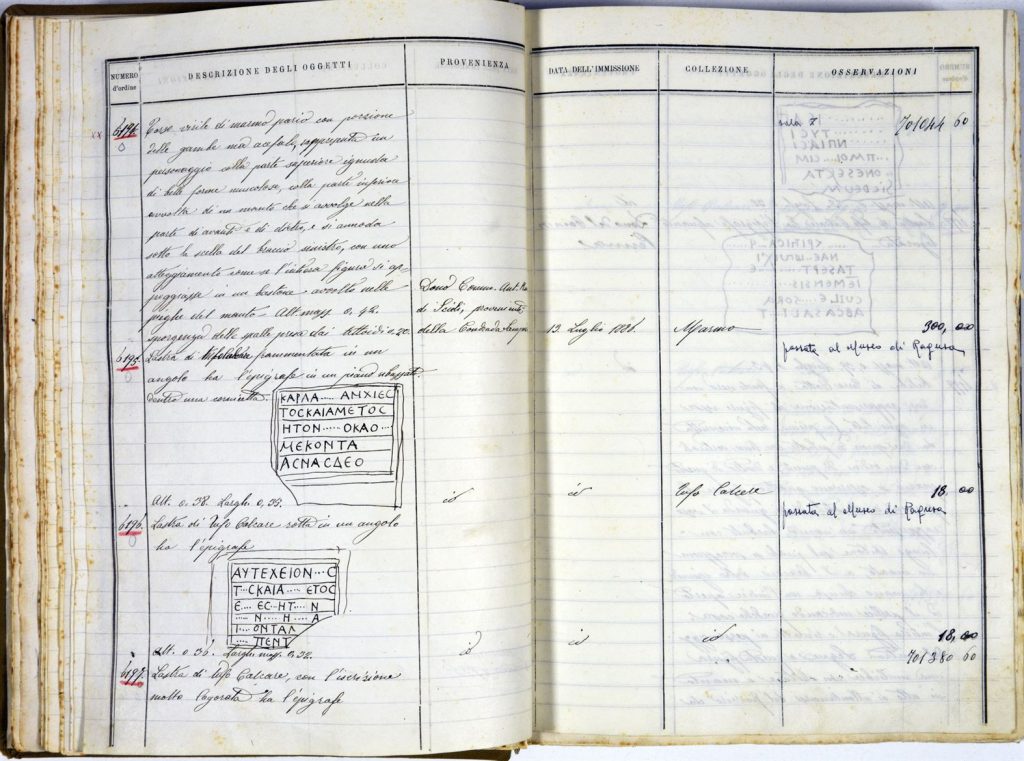 NUMERO d'ordine
DESCRIZIONE DEGLI OGGETTI
PROVENIENZA
DATA DELL'IMMISSIONE
COLLEZIONE
OSSERVAZIONI
701044 60
6194 Torso virile di marmo pario con porzione
delle gambe ma acefalo, rappresenta un
personaggio colla parte superiore ignuda
di belle forme muscolose, colla parte inferiore
avvolta di un manto che si avvolge nella
parte di avanti e di dietro, e si annoda
sotto l'ascella del braccio sinistro, con uno
atteggiamento come se l'intera figura si ap-
poggiasse in un bastone avvolto nelle
pieghe del manto. Alt. mass. 0,42.
sporgenza delle spalle presa dai
Dono Comm. Ant.
di Scicli, proveniente
della Contrada
13 Luglio 1886.
Marmo
300,00
passata al Museo di Ragusa
6195 Lastra di frammentata in un
angolo ha l'epigrafe in un piano ribassato
dentro una cornicetta.
ΚΑΡΛΑ .... ΑΝΧΙΕC
ΤΟCΚΑΙΑΜΕΤΟC
ΗΤΟΝ .... ΟΚΑΟ ..
ΜΕΚΟΝΤΑ
ΑCΝΑCΔΕΟ
Alt. 0.38. Largh. 0,33.
id
id
Tufo Calcare
18,00
passata al Museo di Ragusa
6196 Lastra di Tufo Calcare rotta in un angolo
ha l'epigrafe
ΑΥΤΕΧΕΙΟΝ ... C
Τ .. CΚΑΙΑ .... ΕΤΟC
Ε .... ΕC·ΗΤ ... Ν
... Ν ... Η ... Α
Ι .. ΟΝΤΑΛ
... ΠΕΝΤ
Alt. 0.36. Largh. mass. 0,32.
id
id
id
18,00
701380 60
6197 Lastra di Tufo Calcare, con l'iscrizione
molto logorata ha l'epigrafe